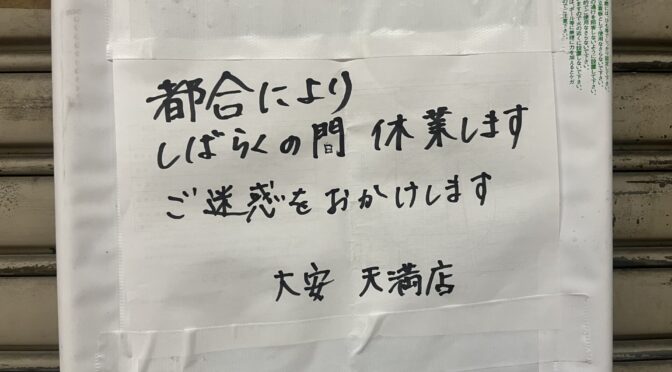 都合により
しばらくの間 休業します
ご迷惑をおかけします
大安 天満店